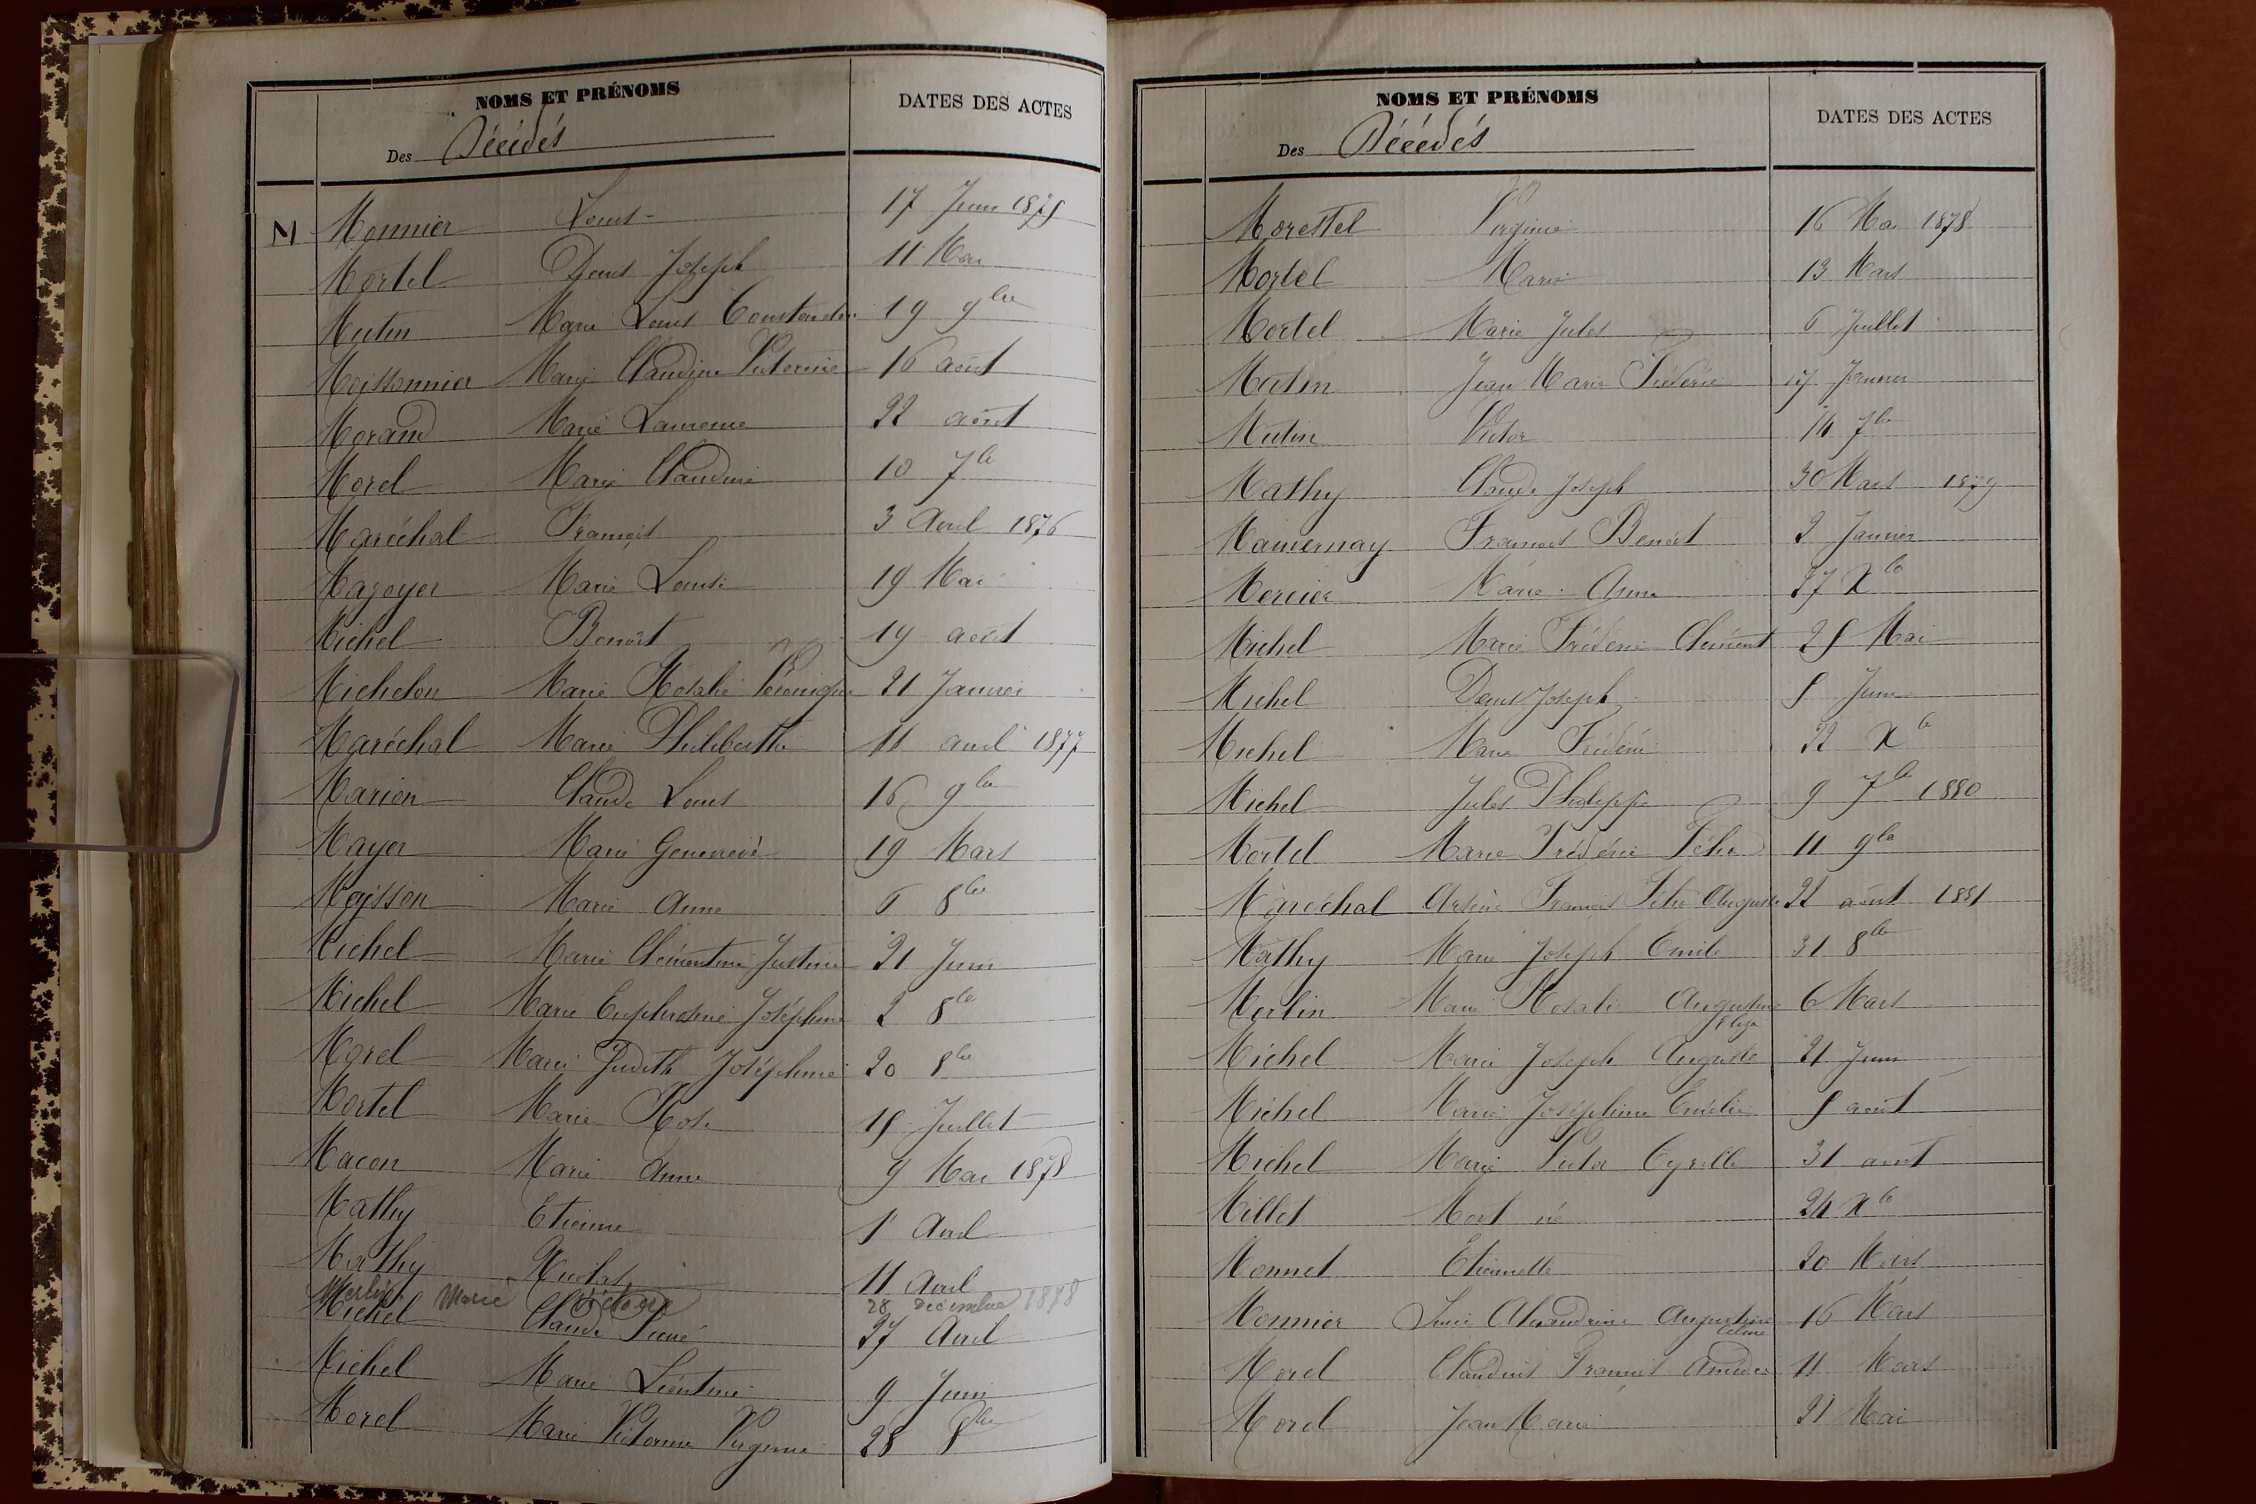 NOMS ET PRÉNOMS
DATES DES ACTES
Des Décédés
M
Monnier Louis 17 Juin 1875
Mortel Denis Joseph 11 Mai
Mutin Marie Louis 19 9bre
Moissonnier Marie Claudine Victorine 16 août
Morand Marie Laurence 22 août
Morel Marie Claudine 10 7bre
Maréchal François 3 Avril 1876
Mazoyer Marie Louise 19 Mai
Michel Benoît 19 août
Michelon Marie Rosalie Véronique 21 Janvier
Maréchal Marie Philiberthe 11 avril 1877
Marion Claude Louis 16 9bre
Mayer Marie Geneviève 19 Mars
Moisson Marie Anne 6 8bre
Michel Marie Clémentine Justine 21 Juin
Michel Marie Euphrosine Joséphine 2 8bre
Morel Marie Judith Joséphine 20 8bre
Mortel Marie Rose 15 Juillet
Macon Marie Anne 9 Mai 1878
Mathy Etienne 1er Avril
Mathy Nicolas 11 Avril
Merlin Marie 28 Décembre 1878
Michel Claude Pierre 27 Avril
Michel Marie Léontine 9 Juin
Morel Marie Victorine Virginie 28 8bre
NOMS ET PRÉNOMS
DATES DES ACTES
Des Décédés
Morestel Virginie 16 Mai 1878
Mortel Marie 13 Mars
Mortel Marie Jules 6 Juillet
Mutin Jean Marie Frédéric 17 Janvier
Mutin Victor 14 7bre
Mathy Claude Joseph 30 Mars 1879
Mauvernay François Benoît 2 Janvier
Mercier Marie Anne 27 Xbre
Michel Marie Frédéric Clément 25 Mai
Michel Denis Joseph 5 Juin
Michel Marie Frédéric 22 Xbre
Michel Jules Philippe 9 7bre 1880
Mortel Marie Frédéric Félix 11 9bre
Maréchal Arsène François Félix Auguste 22 août 1881
Mathy Marie Joseph Emile 31 8bre
Merlin Marie Rosalie Augustine 6 Mars
Michel Marie Joseph Auguste 21 Juin
Michel Marie Joséphine Emélie 5 août
Michel Marie Victor Cyrille 31 août
Millet Mort né 24 Xbre
Monnet Etiennette 20 Mars
Monnier Alexandrine Augustine Céline 16 Mars
Morel Claudius François Amédée 11 Mars
Morel Jean Marie 21 Mai